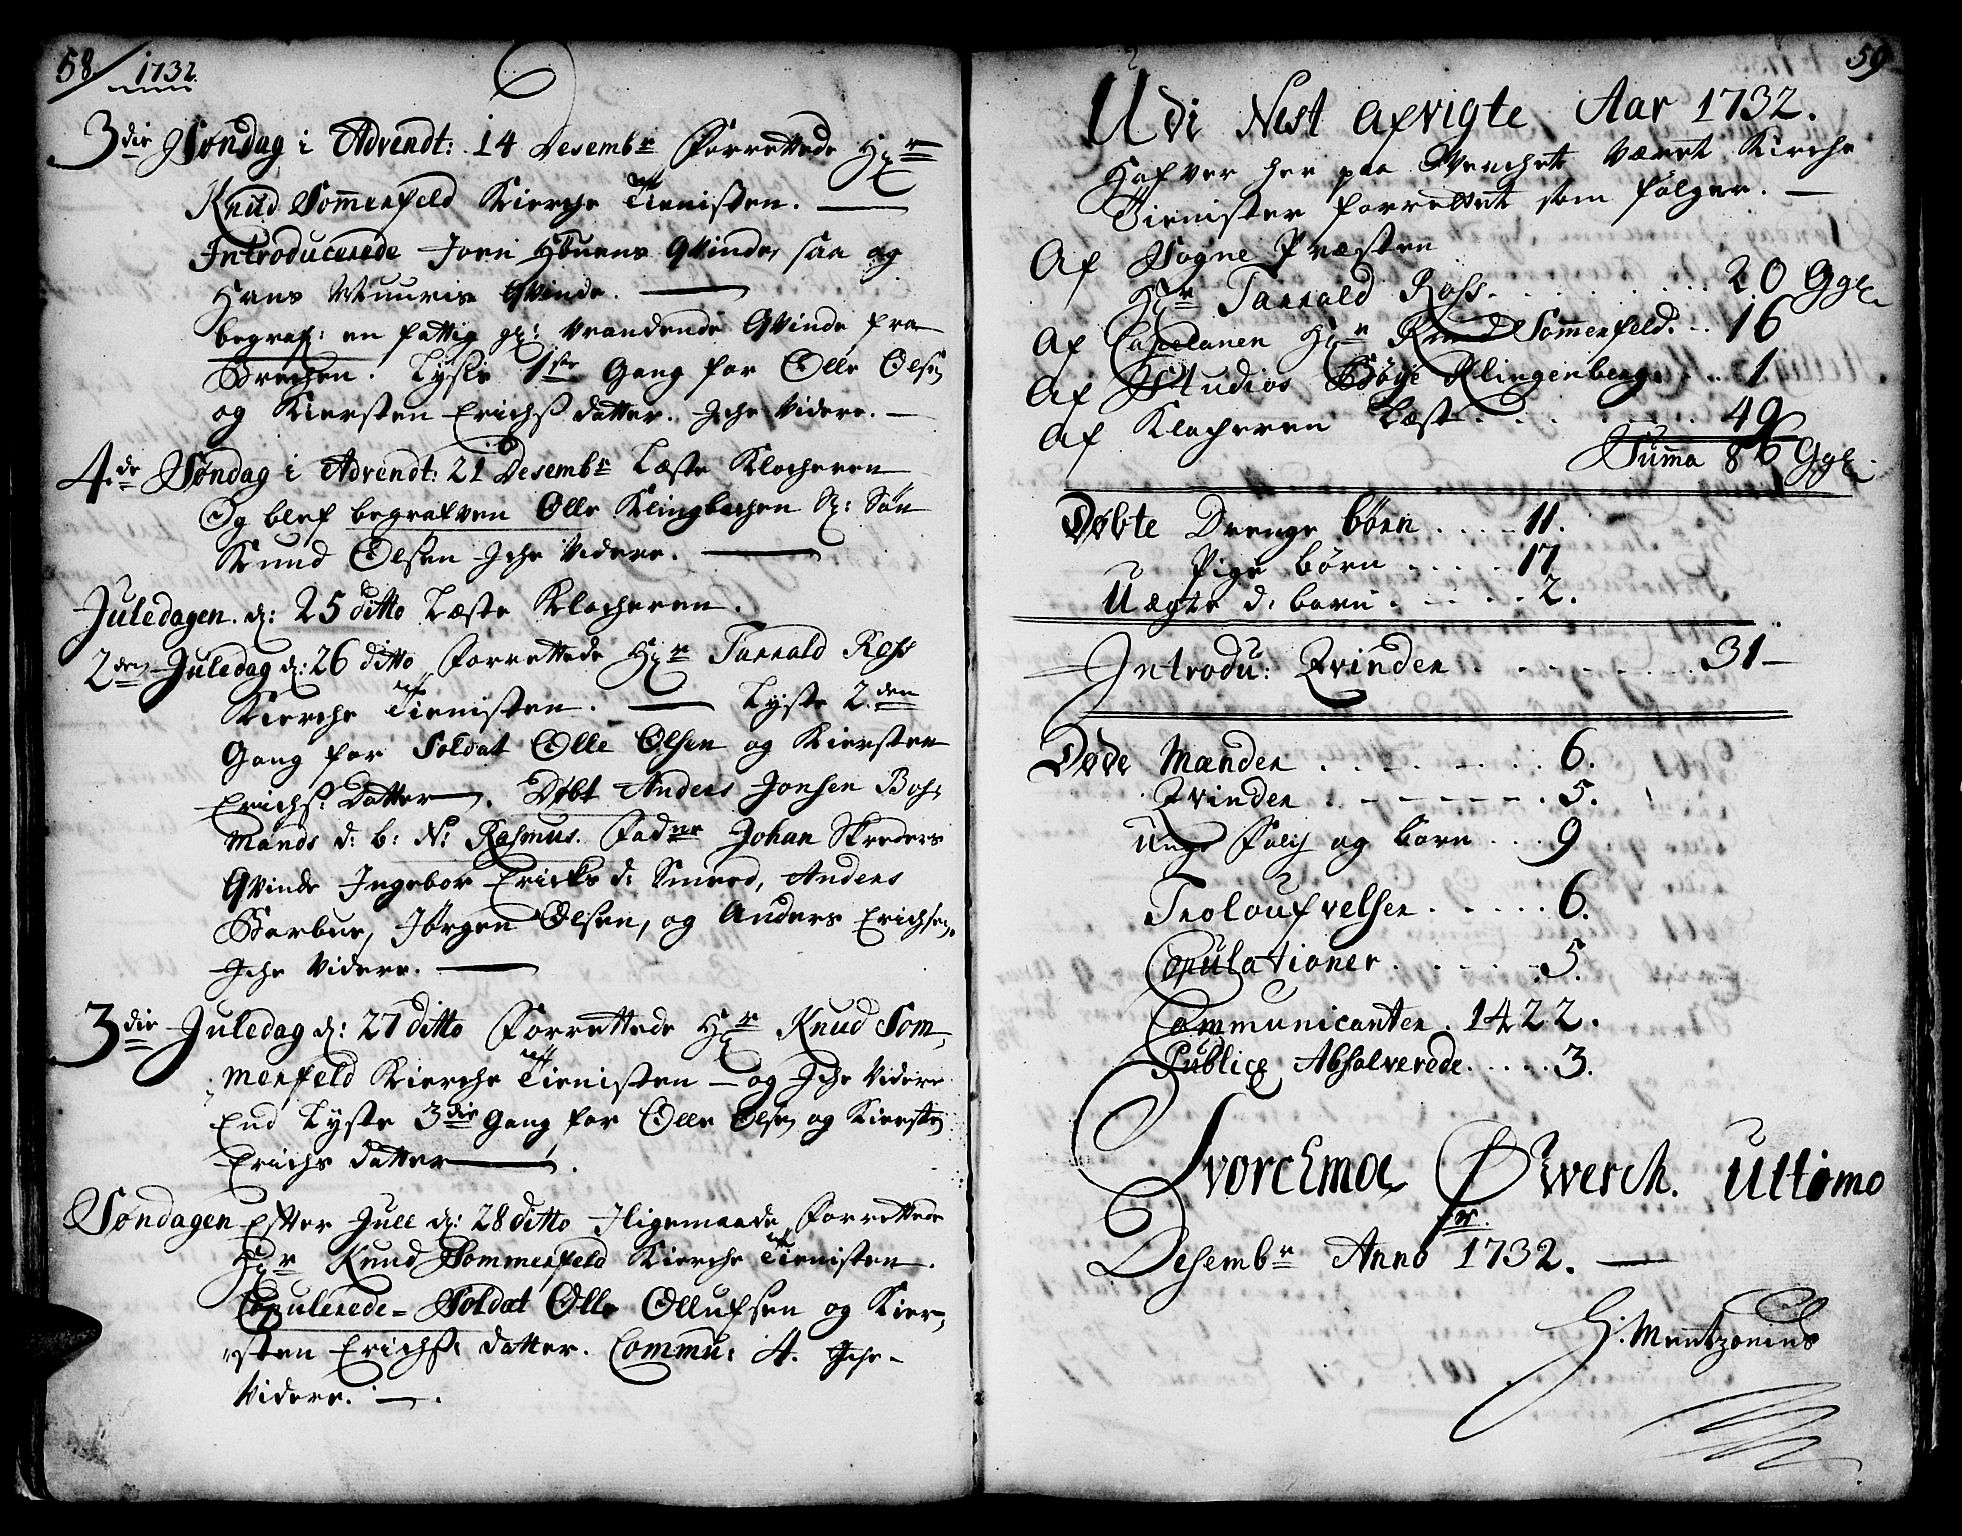 58 / 1732.
3die Søndag i Advendt: 14 Desembr Forrettede Hr
Knud Sommerfeld Kierche Tienisten.
Introducerede Joen Qvinde, saa og
Hans Qvinde.
begraf: en fattig Qvinde fra
Lyste 1ste Gang for Olle Olsen
og Kiersten Erichs datter. Iche Videre.
4de Søndag i Advendt: 21 Desembr Læste Klocheren
Og blef begrafven Olle Klingbechen S: Søn
Knud Olsen Iche Videre.
Juledagen. d: 25 ditto Læste Klocheren.
2den Juledag d: 26 ditto Forrettede Hr Tarrald Ross
Kierche Tienisten. Lyste 2den
Gang for Soldat Olle Olsen og Kiersten
Erichs: Datter. Døbt Anders Jonsen Bos-
mands d: b: N: Rasmus. Fadrne Johan Skreders
Qvinde Ingebor Ericks d: Anders
Jørgen Olsen, og Anders Erichsen.
Iche Videre.
3die Juledag d: 27 ditto Forrettede Hr Knud Som,
merfeld Kierche Tienisten - og Iche Videre
End Lyste 3die Gang for Olle Olsen og Kiersten
Erichs datter.
Søndagen Efter Juel d: 28 ditto Iligemaade Forrettede
Hr Knud Sommerfeld Kierche Tienisten.
Copulerede - Soldat Olle Ollufsen og Kier,
sten Erichs: datter. Commu: 4. Iche
Videre.
59
Udi Nest Afvigte Aar 1732.
Hafver her paa Verchet Været Kirche
Tienister forrettet som følger.
Af Sogne Præsten
Hr Tarrald Ross . . . . 20 Gge
Af Capelanen Hr Knud Sommerfeld. . . 16
Af Studios Bøye Klingenberg. . . 1
Af Klocheren Læst . . . . 49
Summa 86 Gge
Døbte Drenge børn . . . . 11.
Pige børn . . . . 17
Uægte d: børn . . . . 2.
Introdu: Qvinder . . . . 31
Døde Mænder . . . . 6.
Qvinder . . . . 5.
Unge Folch og børn . . . 9
Troloufvelser . . . . 6.
Copulationer . . . . 5.
Communicanter. 1422.
Publice Absolverede . . . . 3.
Qverch. Ultimo
Desembr Anno 1732.
H: Mentzonius